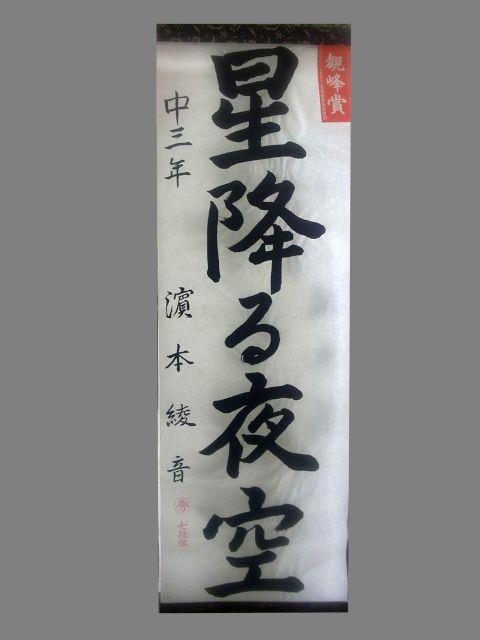 観峰賞
星降る夜空
中三年 濵本綾音
秀 七段位